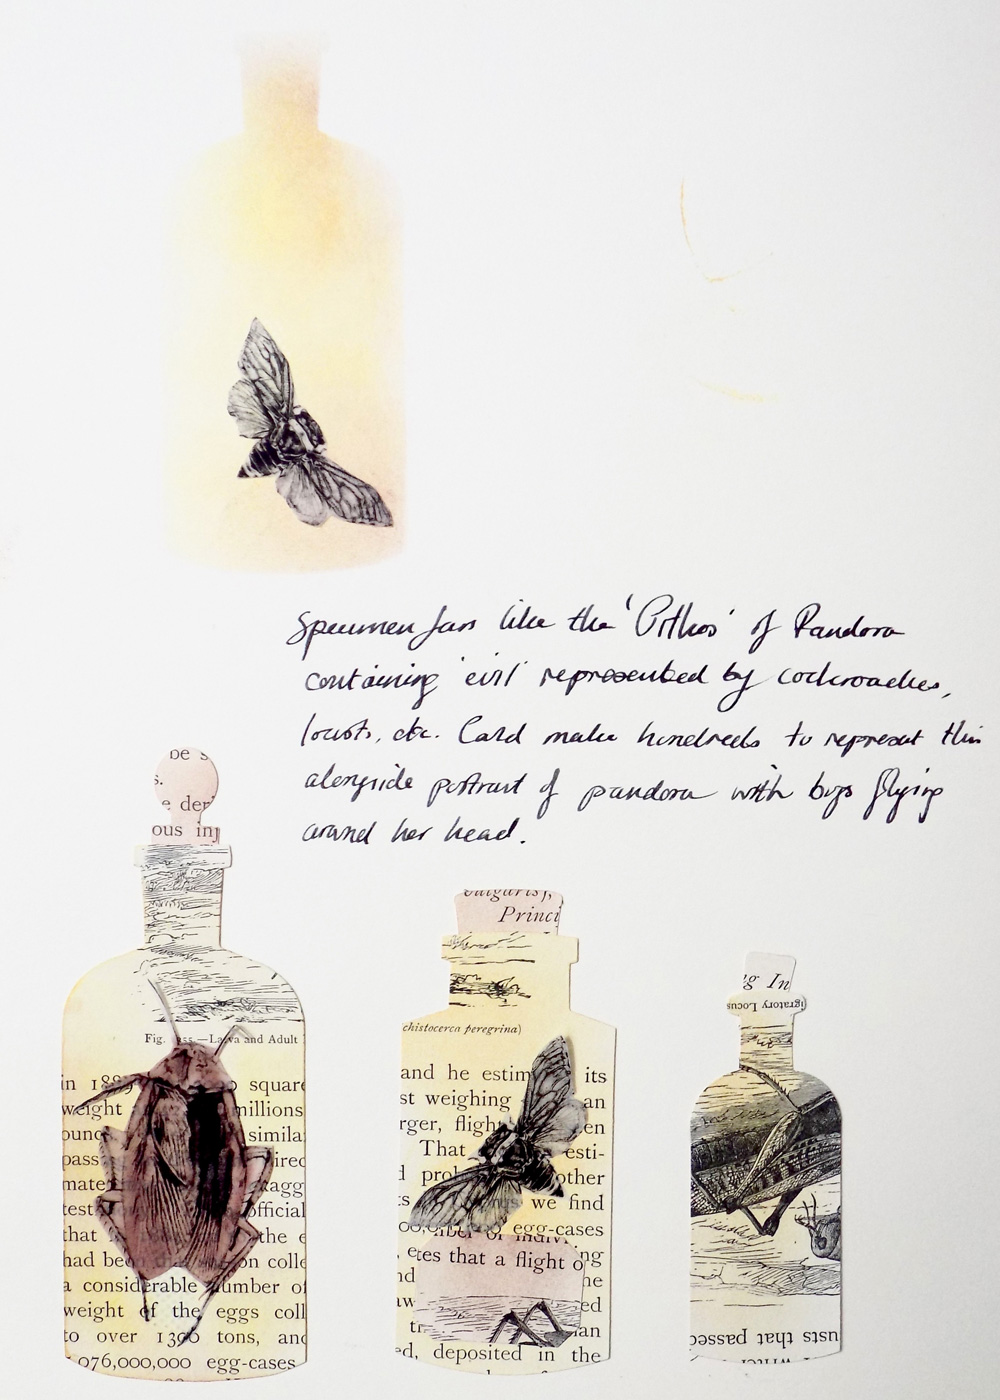 Specimen Jars like the 'Pithos' of Pandora
containing 'evil' represented by cockroaches,
locusts, etc. Could make hundreds to represent this
alongside portrait of pandora with bugs flying
around her head.
be s
s.
e der
ous inj
Fig. 55.—La va and Adult
in 188 square
weight millions
ounc simila
pass irec
mate xagg
test official
that the e
had been on colle
a considerable number of
weight of the eggs coll
to over 1300 tons, and
076,000,000 egg-cases
Princi
chistocerca peregrina)
and he estim its
st weighing an
rger, flight en
That esti-
d prob other
ts we find
egg-cases
ing
etes that a flight o
nd he
aw ed
tr an
ed, deposited in the
ig In
igratory Locus
usts that passed